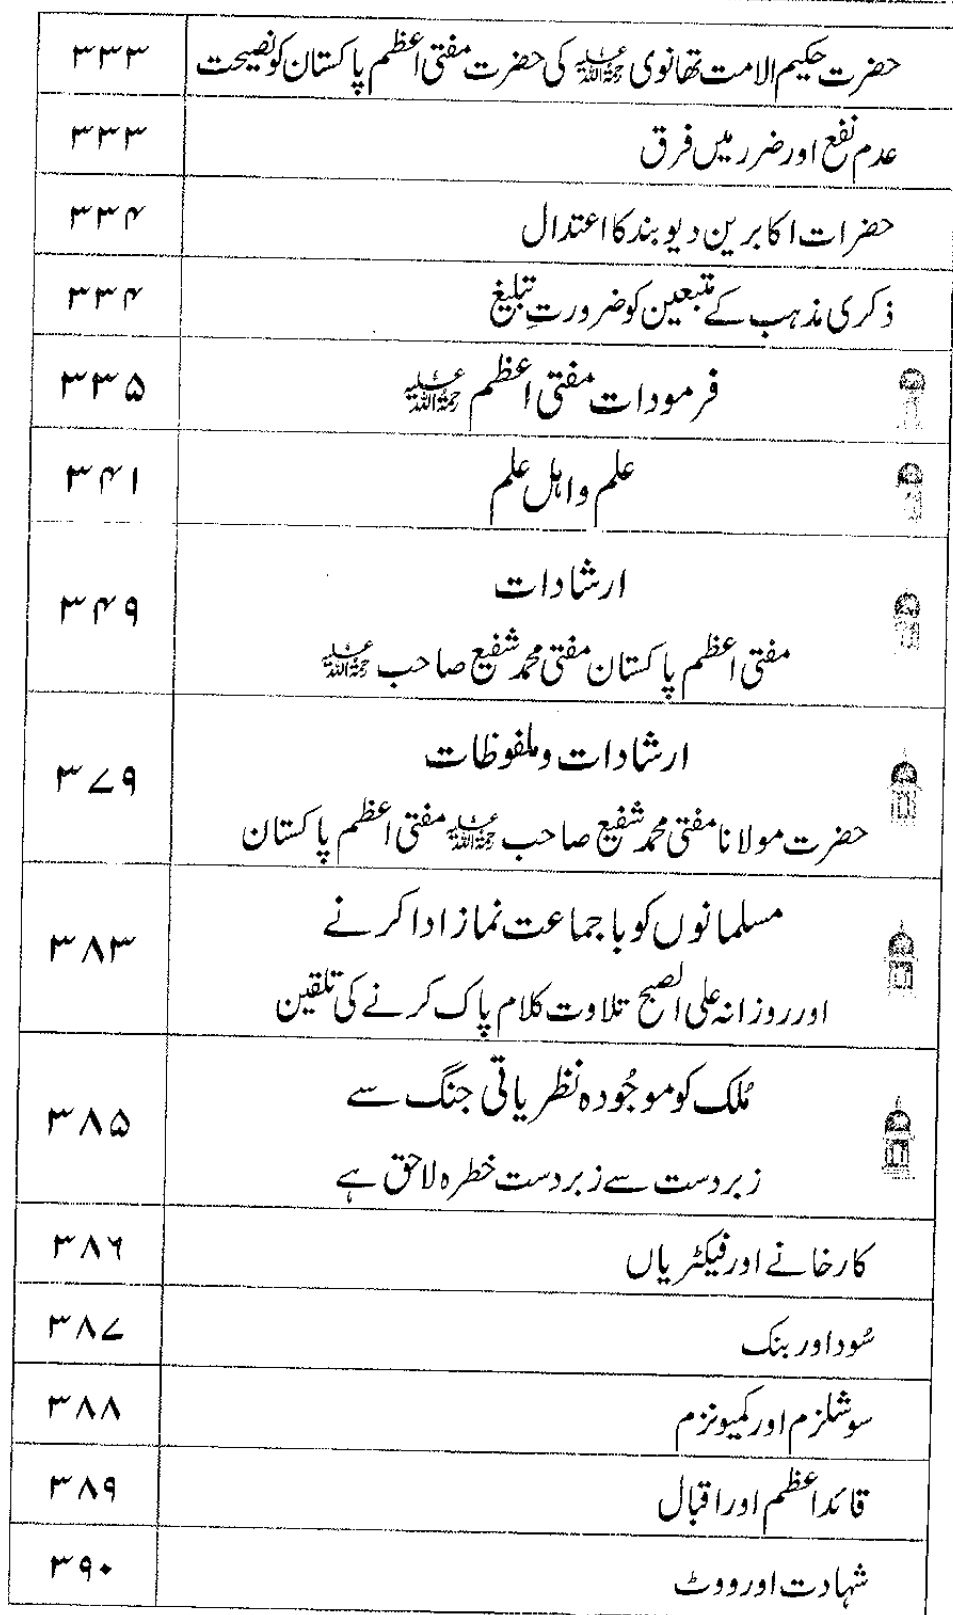 حضرت حکیم الامت تھانوی رحمۃ اللہ علیہ کی حضرت مفتی اعظم پاکستان کو نصیحت ۳۳۳
عدم نفع اور ضرر میں فرق ۳۳۳
حضرات اکابرین دیوبند کا اعتدال ۳۳۴
ذکری مذہب کے متبعین کو ضرورتِ تبلیغ ۳۳۴
فرمودات مفتی اعظم رحمۃ اللہ علیہ ۳۳۵
علم و اہل علم ۳۴۱
ارشادات
مفتی اعظم پاکستان مفتی محمد شفیع صاحب رحمۃ اللہ علیہ ۳۴۹
ارشادات و ملفوظات
حضرت مولانا مفتی محمد شفیع صاحب رحمۃ اللہ علیہ مفتی اعظم پاکستان ۳۷۹
مسلمانوں کو باجماعت نماز ادا کرنے
اور روزانہ علی الصبح تلاوت کلام پاک کرنے کی تلقین ۳۸۳
مُلک کو موجُودہ نظریاتی جنگ سے
زبردست سے زبردست خطرہ لاحق ہے ۳۸۵
کارخانے اور فیکٹریاں ۳۸۶
سُود اور بنک ۳۸۷
سوشلزم اور کمیونزم ۳۸۸
قائد اعظم اور اقبال ۳۸۹
شہادت اور ووٹ ۳۹۰